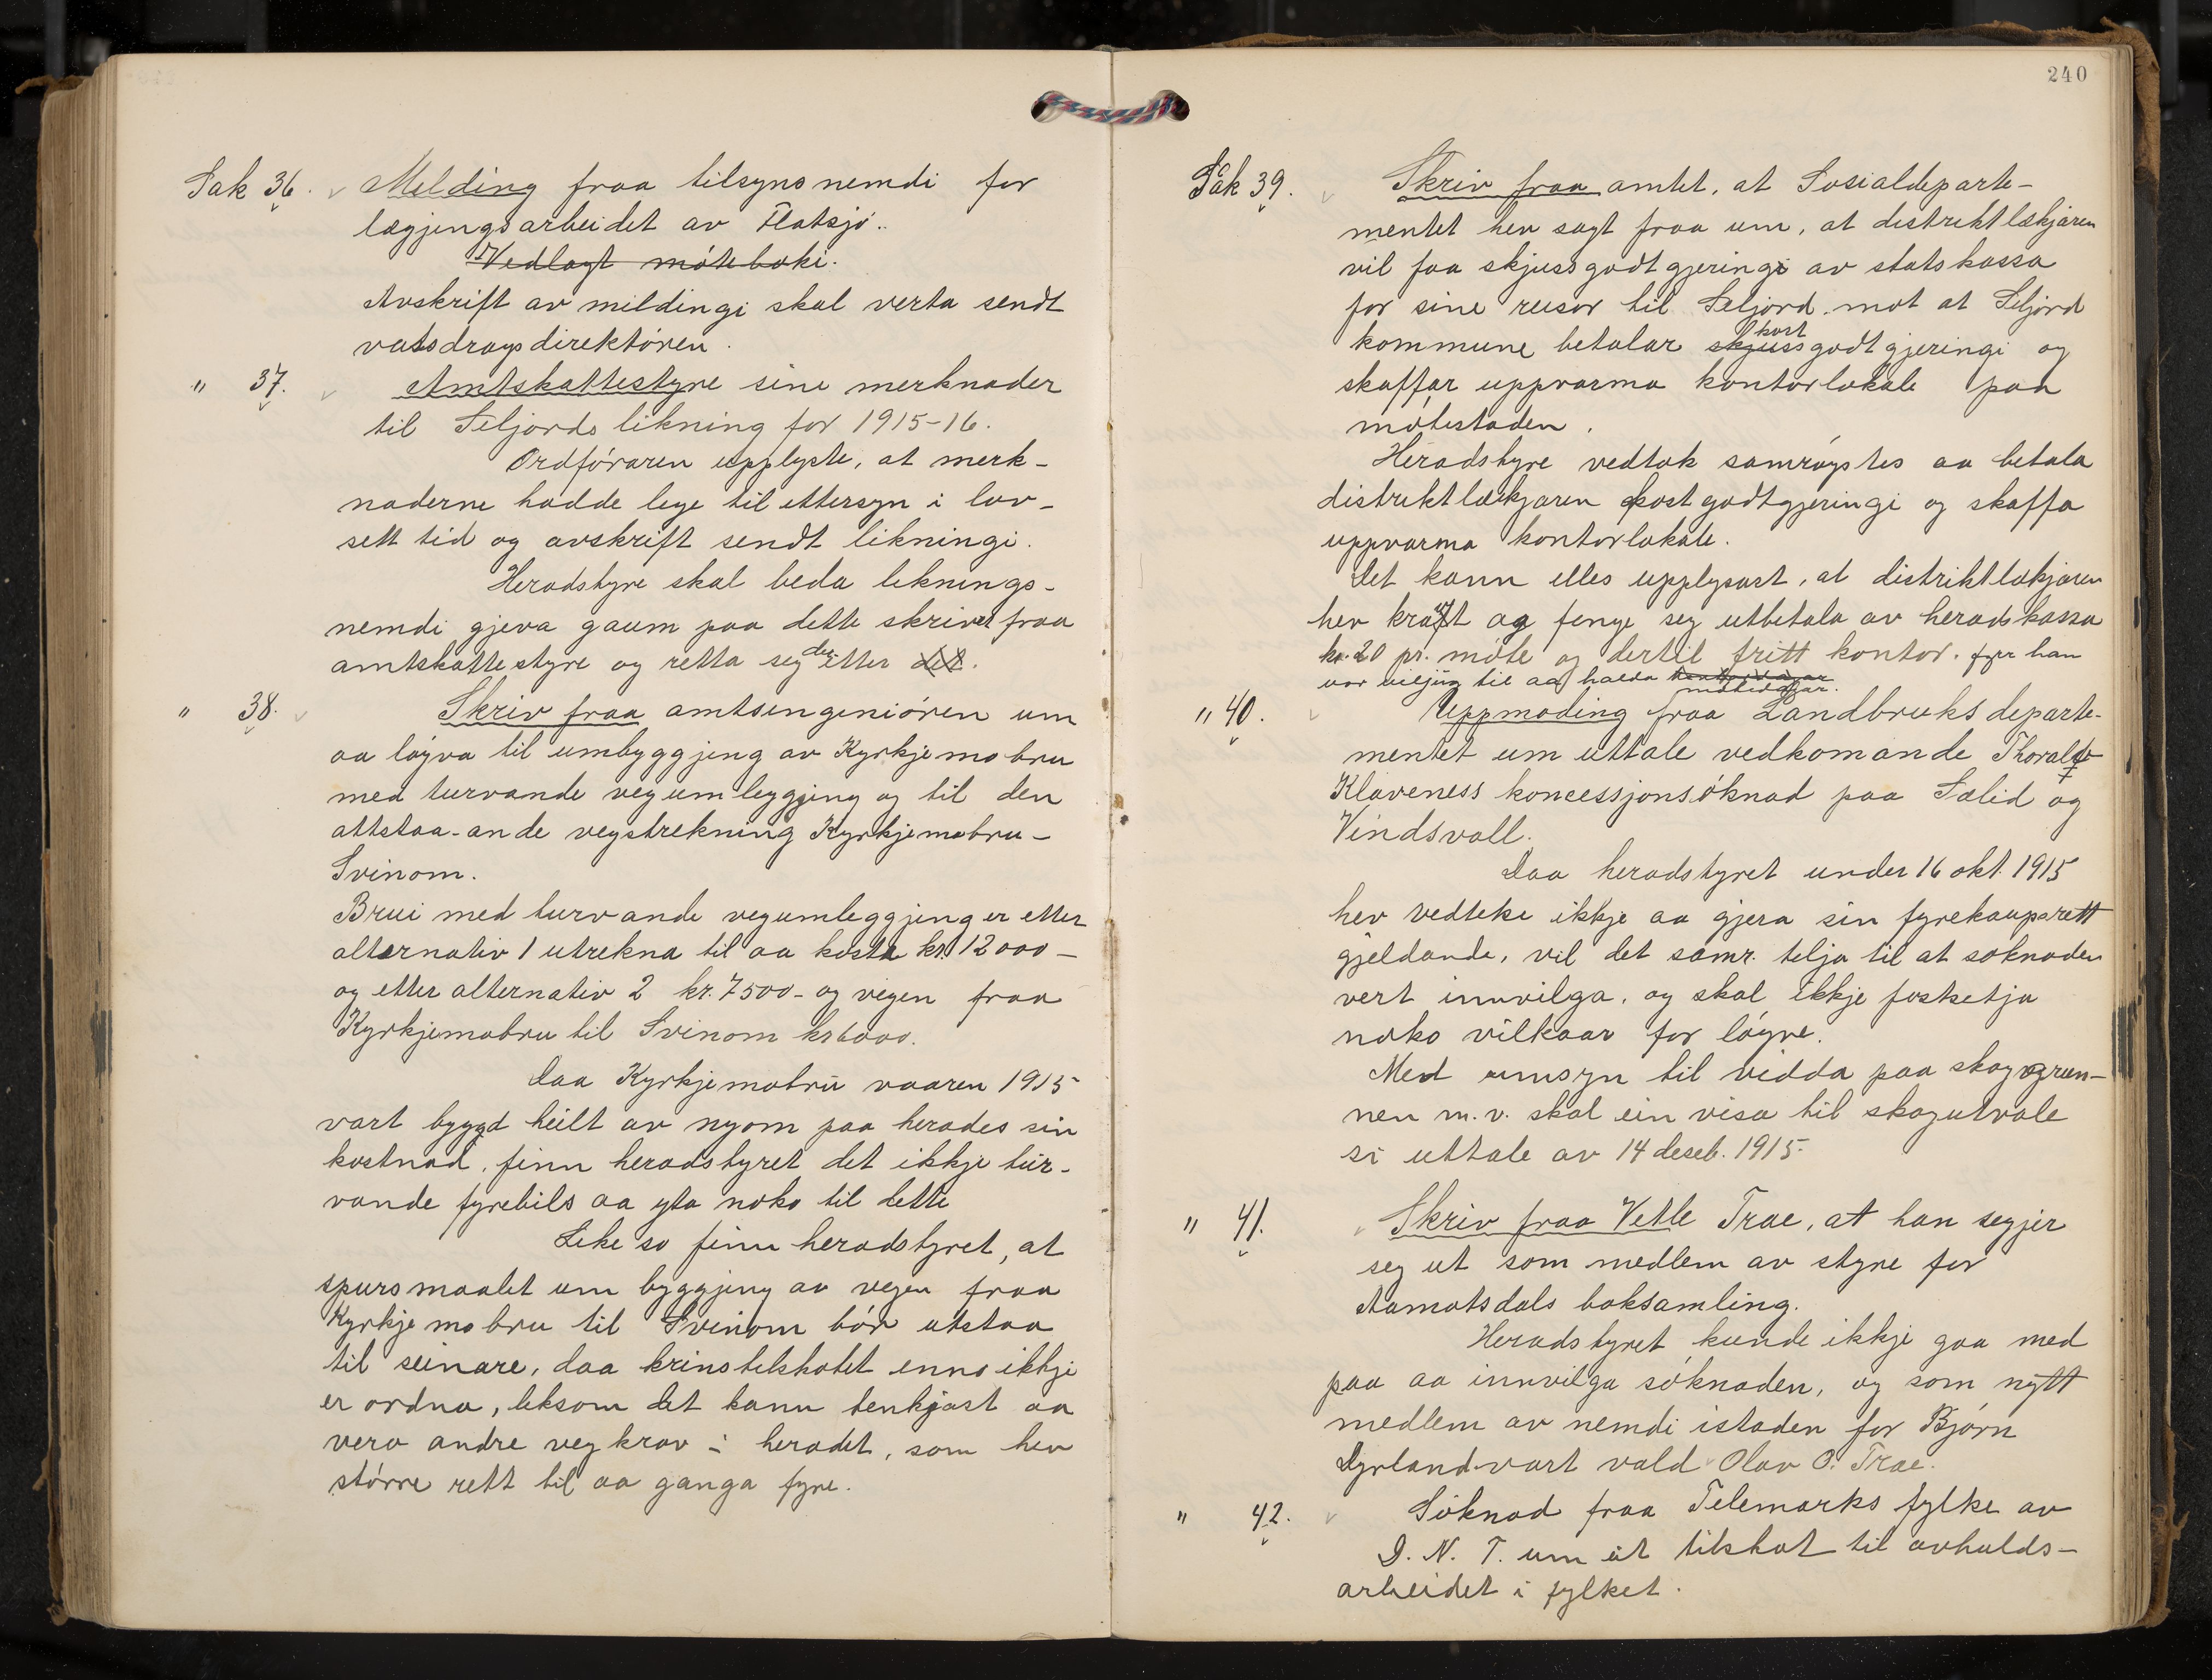 Sak 36. Melding fraa tilsynsnemdi for
lægjingsarbeidet av Flatsjø.
Vedlagt møteboki.
Avskrift av mildingi skal verta sendt
vatsdragsdirektøren.
" 37. Amtskattestyre sine merknader
til Seljords likning for 1915-16.
Ordføraren upplyste, at merk-
naderne hadde lege til ettersyn i lov-
sett tid og avskrift sendt likningi.
Heradstyre skal beda liknings-
nemdi gjeva gaum paa dette skrivet fraa
amtskattestyre og retta seg der etter det.
" 38. Skriv fraa amtsingeniøren um
aa løyva til umbyggjing av Kyrkjemobru
med turvande vegumleggjing og til den
attstaa-ande vegstrekning Kyrkjemobru-
Svinom.
Brui med turvande vegumleggjing er etter
alternativ 1 utrekna til aa kosta kr. 12000-
og etter alternativ 2 kr. 7500- og vegen fraa
Kyrkjemobru til Svinom kr 6000.
Daa Kyrkjemobru vaaren 1915
vart bygd heilt av nyom paa herades sin
kostnad, finn heradstyret det ikkje tur-
vande fyrebils aa yta noko til dette
Like so finn heradstyret, at
spursmaalet um byggjing av vegen fraa
Kyrkjemobru til Svinom bør utstaa
til seinare, daa krinstilskotet enno ikkje
er ordna, liksom det kann tenkjast aa
vera andre vegkrav i heradet, som hev
større rett til aa ganga fyre.
240
Sak 39. Skriv fraa amtet, at Sosialdeparte-
mentet hev sagt fraa um, at distriktlækjaren
vil faa skjussgodtgjeringi av statskassa
for sine reisor til Seljord mot at Seljord
kommune betalar skjuss kost godtgjeringi og
skaffar uppvarma kontorlokale paa
møtestaden.
Heradstyre vedtok samrøystes aa betala
distriktlækjaren kostgodtgjeringi og skaffa
uppvarma kontorlokale.
Det kann elles upplysast, at distriktlækjaren
hev kravt og fenge seg utbetala av heradskassa
kr. 20 pr. møte og dertil fritt kontor. fyrr han
var viljug til aa halda kontordagar
møtedagar.
" 40. Uppmoding fraa Landbruksdeparte-
mentet um uttale vedkomande Thoralf
Klaveness koncessjonsøknad paa Sælid og
Vindsvoll.
Daa heradstyret under 16 okt. 1915
hev vedteke ikkje aa gjera sin fyrekaupsrett
gjeldande, vil det samr. telja til at søknaden
vert innvilga, og skal ikkje fastsetja
noko vilkaar for løyve.
Med umsyn til vidda paa skoggrun-
nen m.v. skal ein visa til skogutvale
si uttale av 14 deseb. 1915.
" 41. Skriv fraa Vetle Trae, at han segjer
seg ut som medlem av styre for
Aamotsdals boksamling.
Heradstyret kunde ikkje gaa med
paa aa innvilga søknaden, og som nytt
medlem av nemdi istaden for Bjørn
Dyrland vart vald Olav O. Trae.
" 42. Søknad fraa Telemarks fylke av
D. N. T. um eit tilskot til avhalds-
arbeidet i fylket.